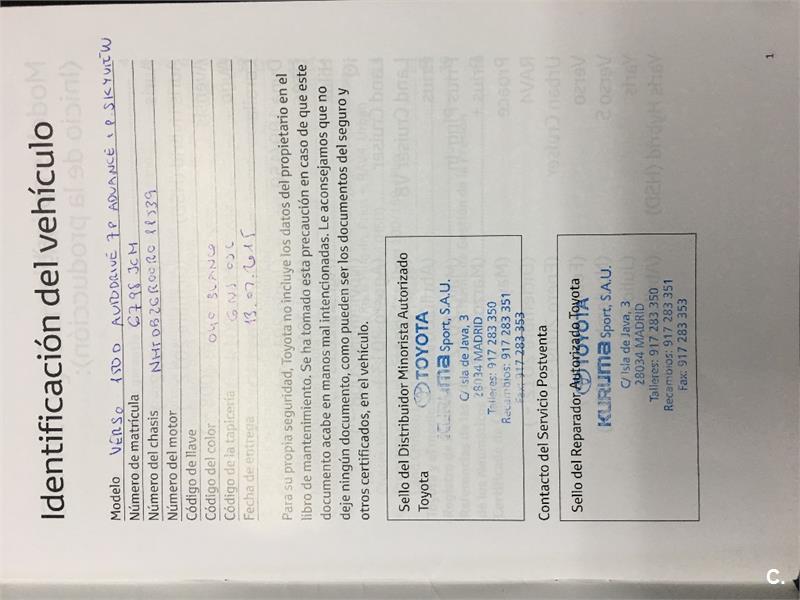 Identificación del vehículo
Modelo VERSO 150D AUTODRIVE 7P ADVANCE + P SKYVIEW
Número de matrícula 6798 JCH
Número del chasis
Número del motor
Código de llave
Código del color 040 BLANCO
Código de la tapicería
Fecha de entrega 13.07.2015
Para su propia seguridad, Toyota no incluye los datos del propietario en el
libro de mantenimiento. Se ha tomado esta precaución en caso de que este
documento acabe en manos mal intencionadas. Le aconsejamos que no
deje ningún documento, como pueden ser los documentos del seguro y
otros certificados, en el vehículo.
Sello del Distribuidor Minorista Autorizado
Toyota
TOYOTA
Kuruma Sport, S.A.U.
C/ Isla de Java, 3
28034 MADRID
Talleres: 917 283 350
Recambios: 917 283 351
Fax: 917 283 353
Contacto del Servicio Postventa
Sello del Reparador Autorizado Toyota
TOYOTA
KURUMA Sport, S.A.U.
C/ Isla de Java, 3
28034 MADRID
Talleres: 917 283 350
Recambios: 917 283 351
Fax: 917 283 353
1
C.